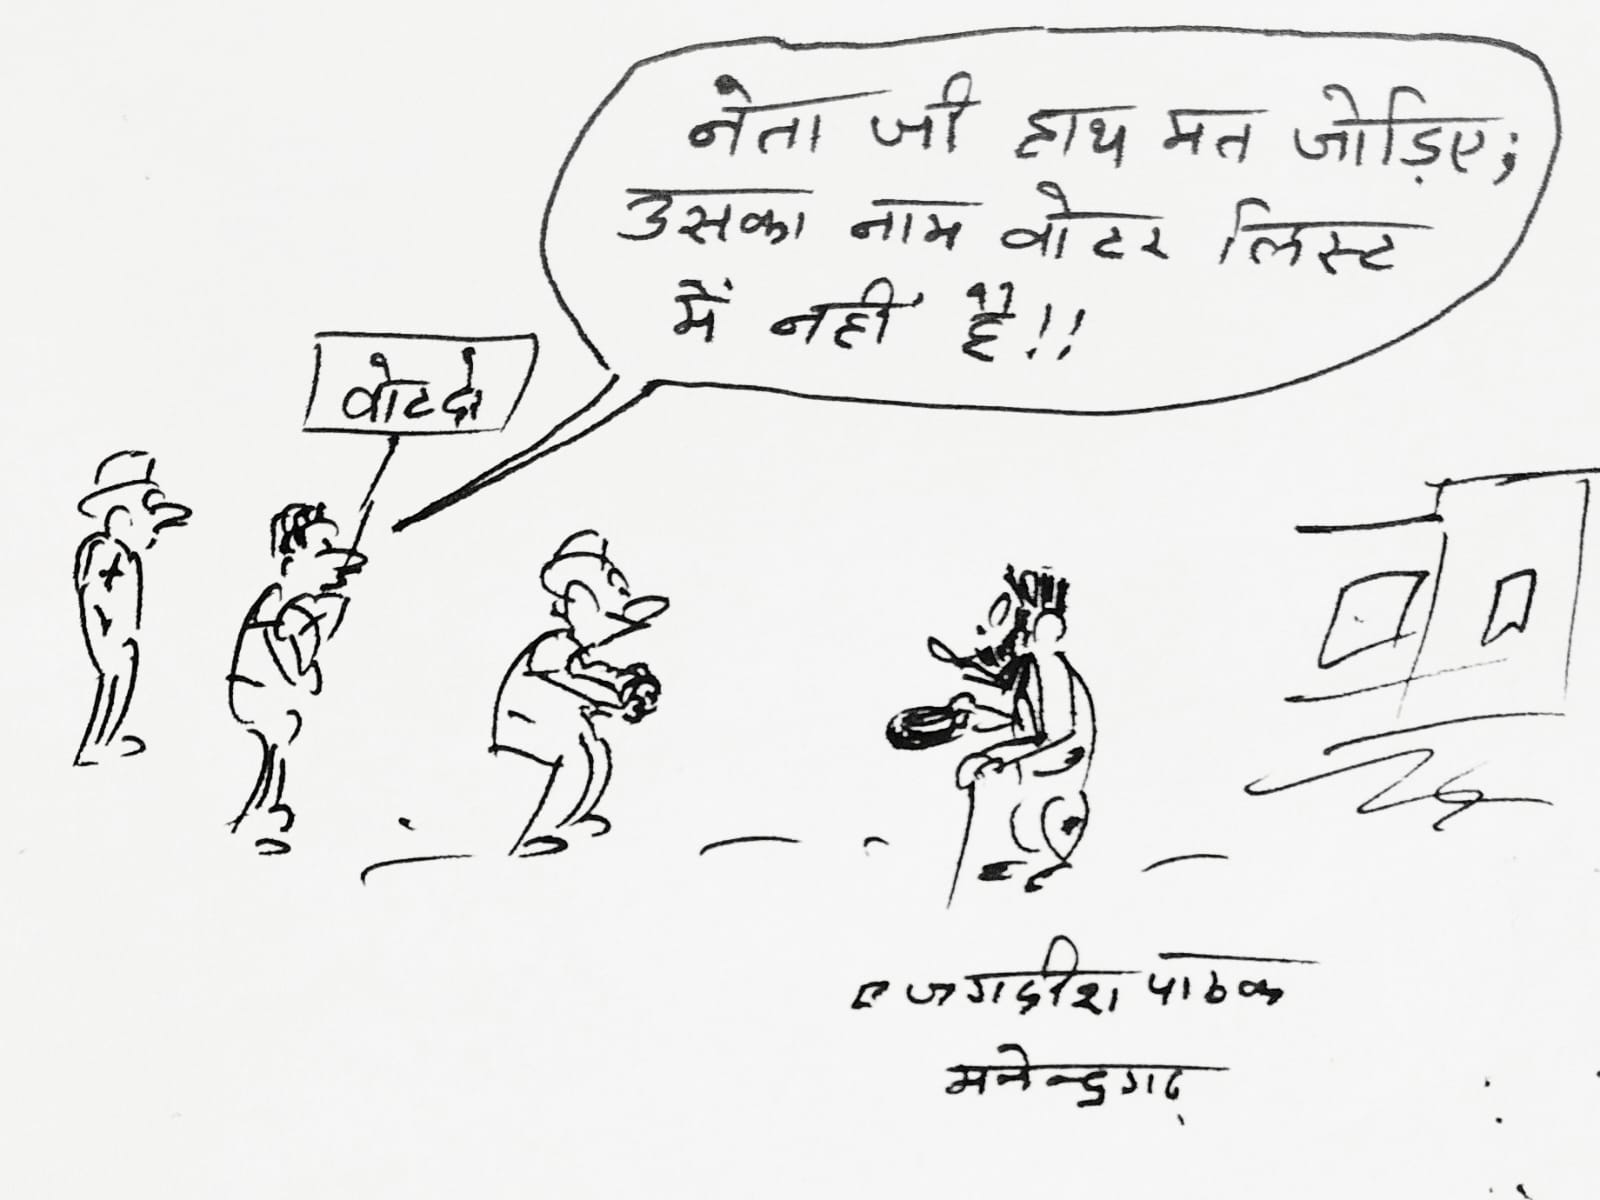 नेता जी हाथ मत जोड़िए;
उसका नाम वोटर लिस्ट
में नहीं है!!
वोट दो
जगदीश पाठक
मनेन्द्रगढ़